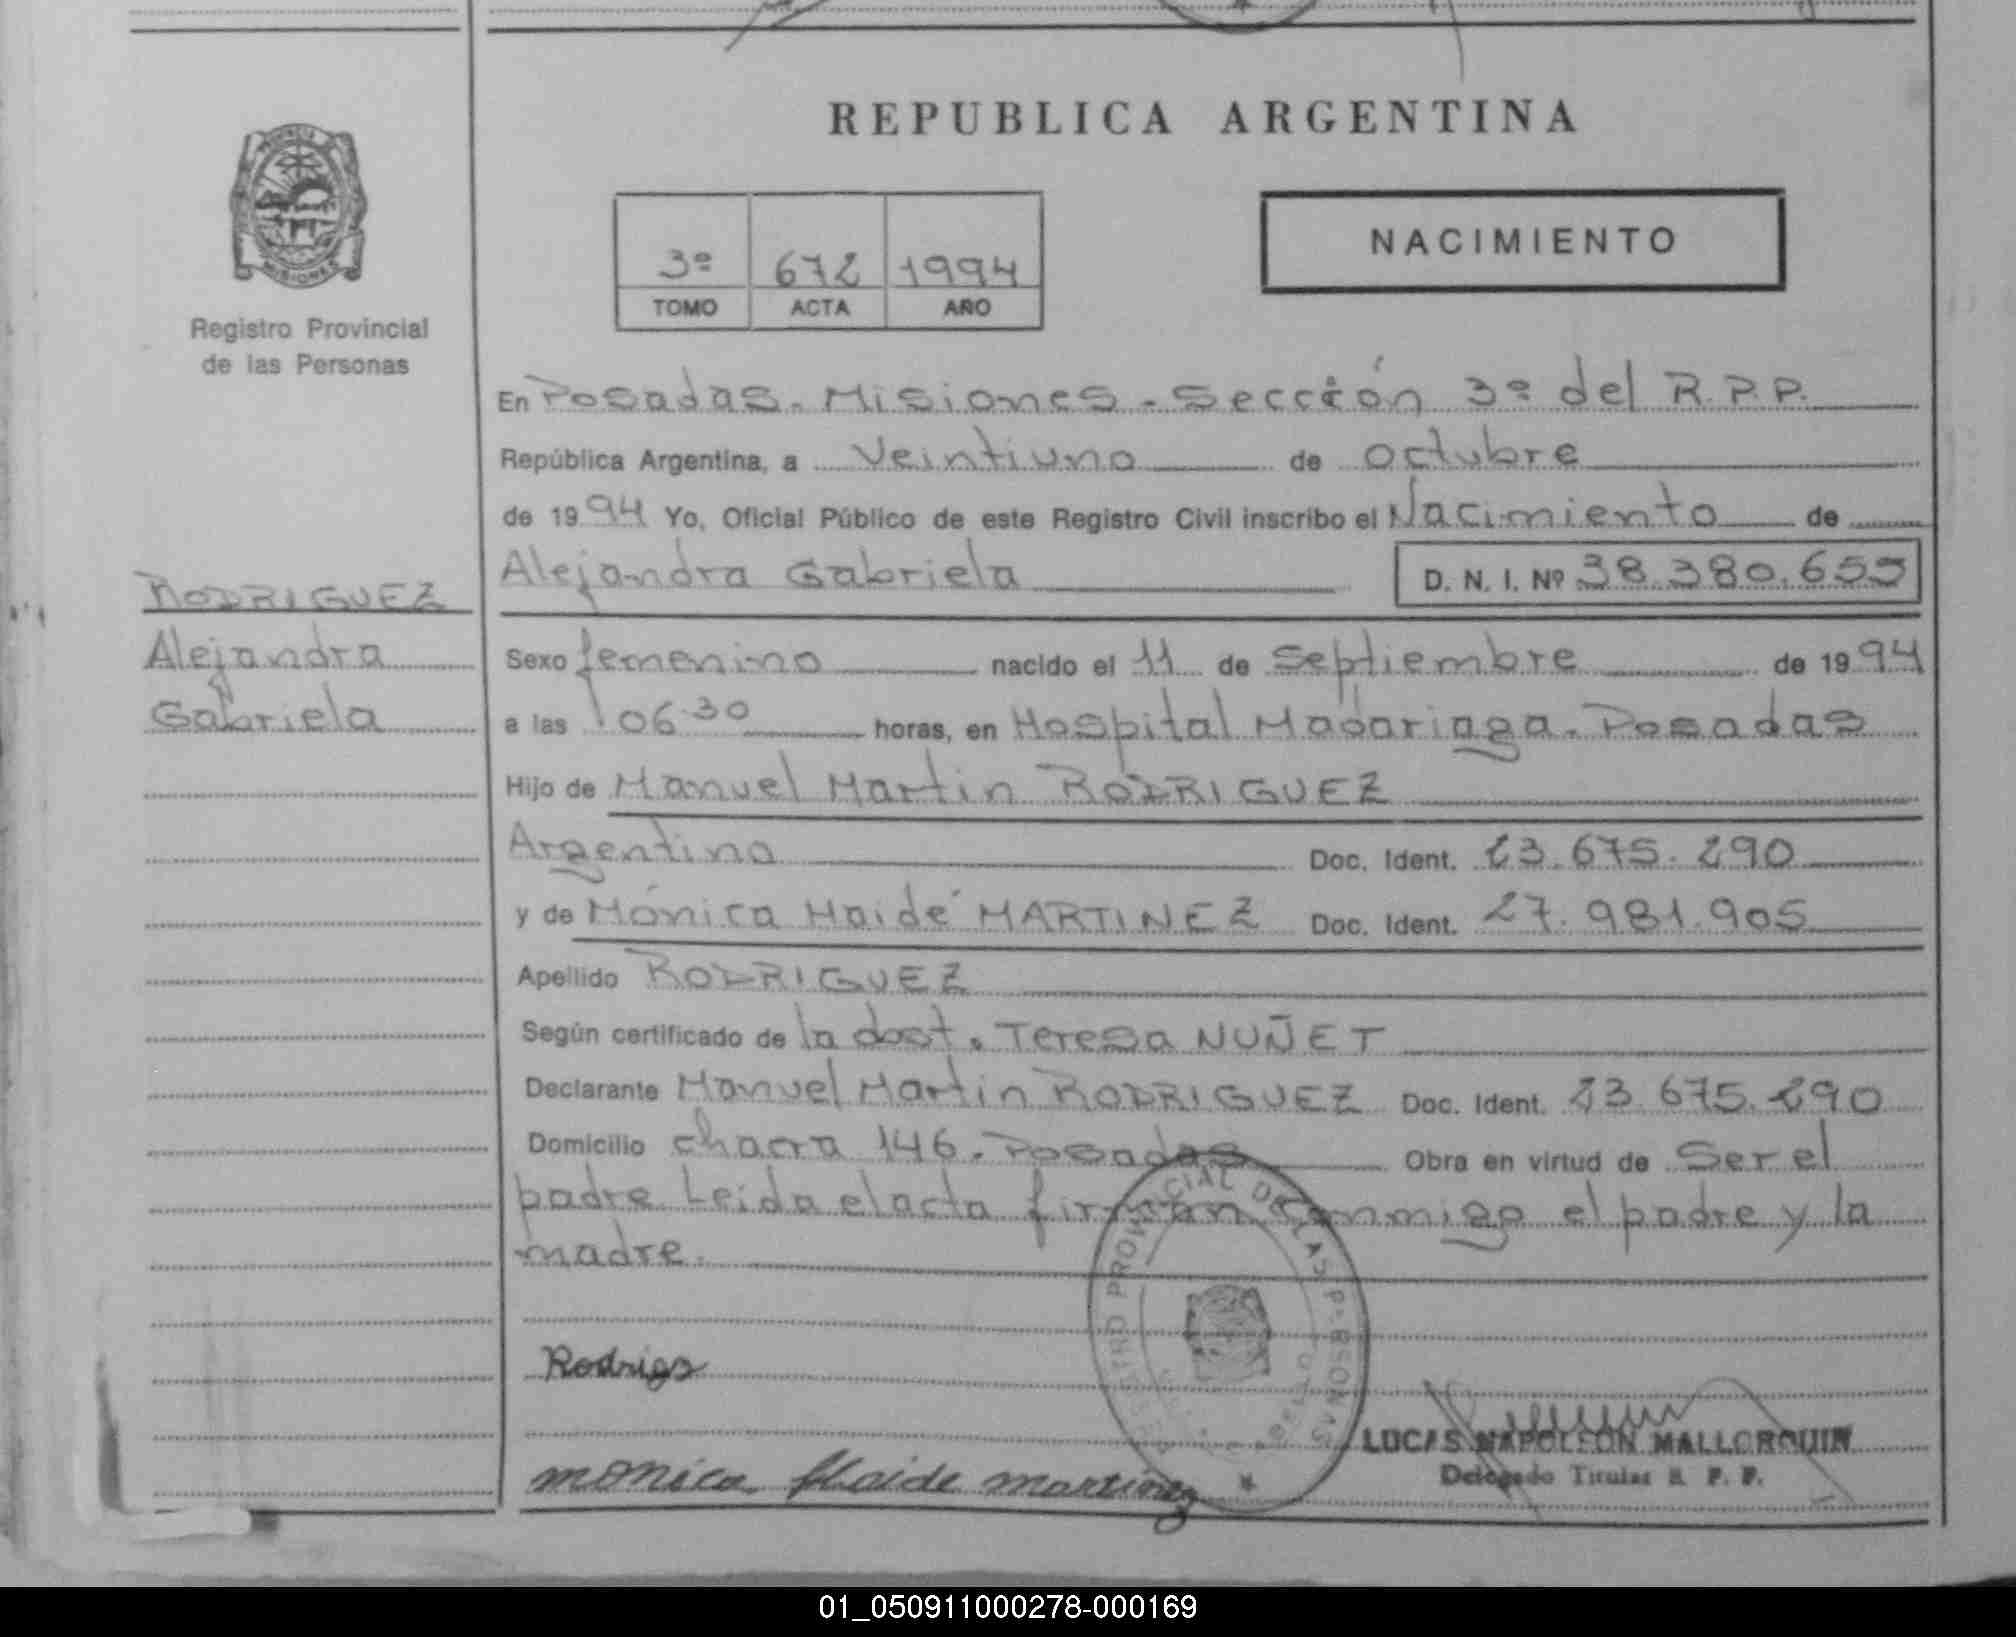 REPUBLICA ARGENTINA
3º 672 1994
TOMO ACTA AÑO
NACIMIENTO
MISIONES
Registro Provincial
de las Personas
RODRIGUEZ
Alejandra
Gabriela
En Posadas. Misiones - Sección 3º del R.P.P.
República Argentina, a Veintiuno de octubre
de 1994 Yo, Oficial Público de este Registro Civil inscribo el Nacimiento de
Alejandra Gabriela D. N. I. Nº 38.380.655
Sexo femenino nacido el 11 de Septiembre de 1994
a las 06.30 horas, en Hospital Madariaga. Posadas
Hijo de Manuel Martin RODRIGUEZ
Argentino Doc. Ident. 23.675.290
y de Mónica Haidé MARTINEZ Doc. Ident. 27.981.905
Apellido RODRIGUEZ
Según certificado de la dost. Teresa NUÑET
Declarante Manuel Martin RODRIGUEZ Doc. Ident. 23.675.290
Domicilio chacra 146. Posadas Obra en virtud de Ser el
padre. Leida el acta firman conmigo el padre y la
madre.
Rodrigo
monica Haide martinez
LUCAS NAPOLEON MALLORQUIN
Delegado Titular R. P. P.
01_050911000278-000169